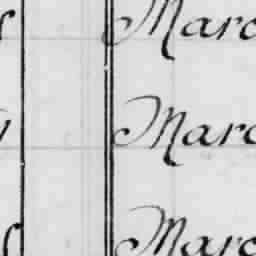 Marc
Marc
Marc